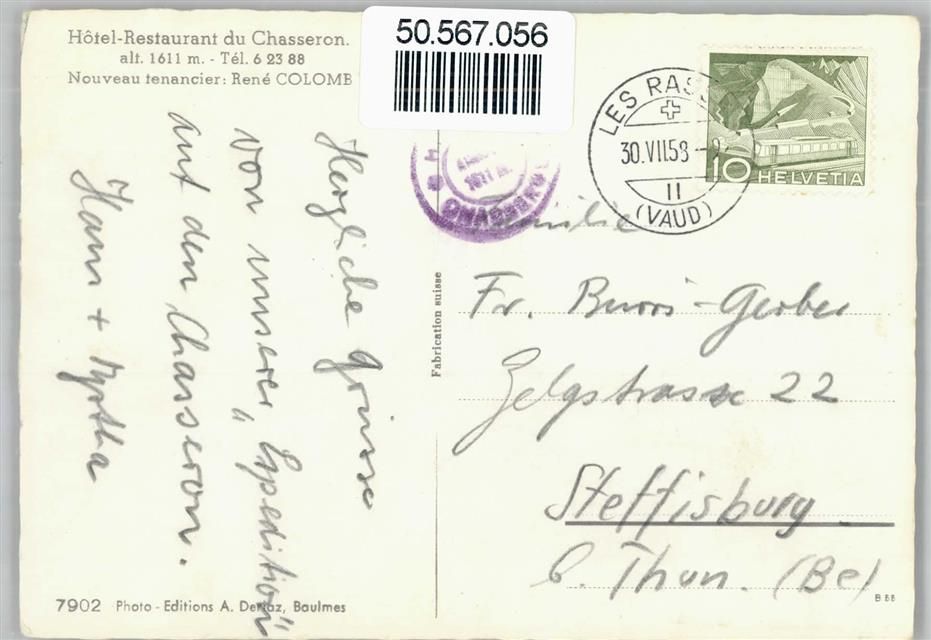 Hôtel-Restaurant du Chasseron.
alt. 1611 m. - Tél. 6 23 88
Nouveau tenancier: René COLOMB
50.567.056
Herzliche Grüsse
von unserer „Expedition"
auf den Chasseron.
Hann + Myrtha
LES RAS
30.VII.58
II
(VAUD)
10 HELVETIA
Fabrication suisse
Familie
Fr. Burri-Gerber
Zelgstrasse 22
Steffisburg
b. Thun. (Be)
7902 Photo-Editions A. Deriaz, Baulmes
B 58